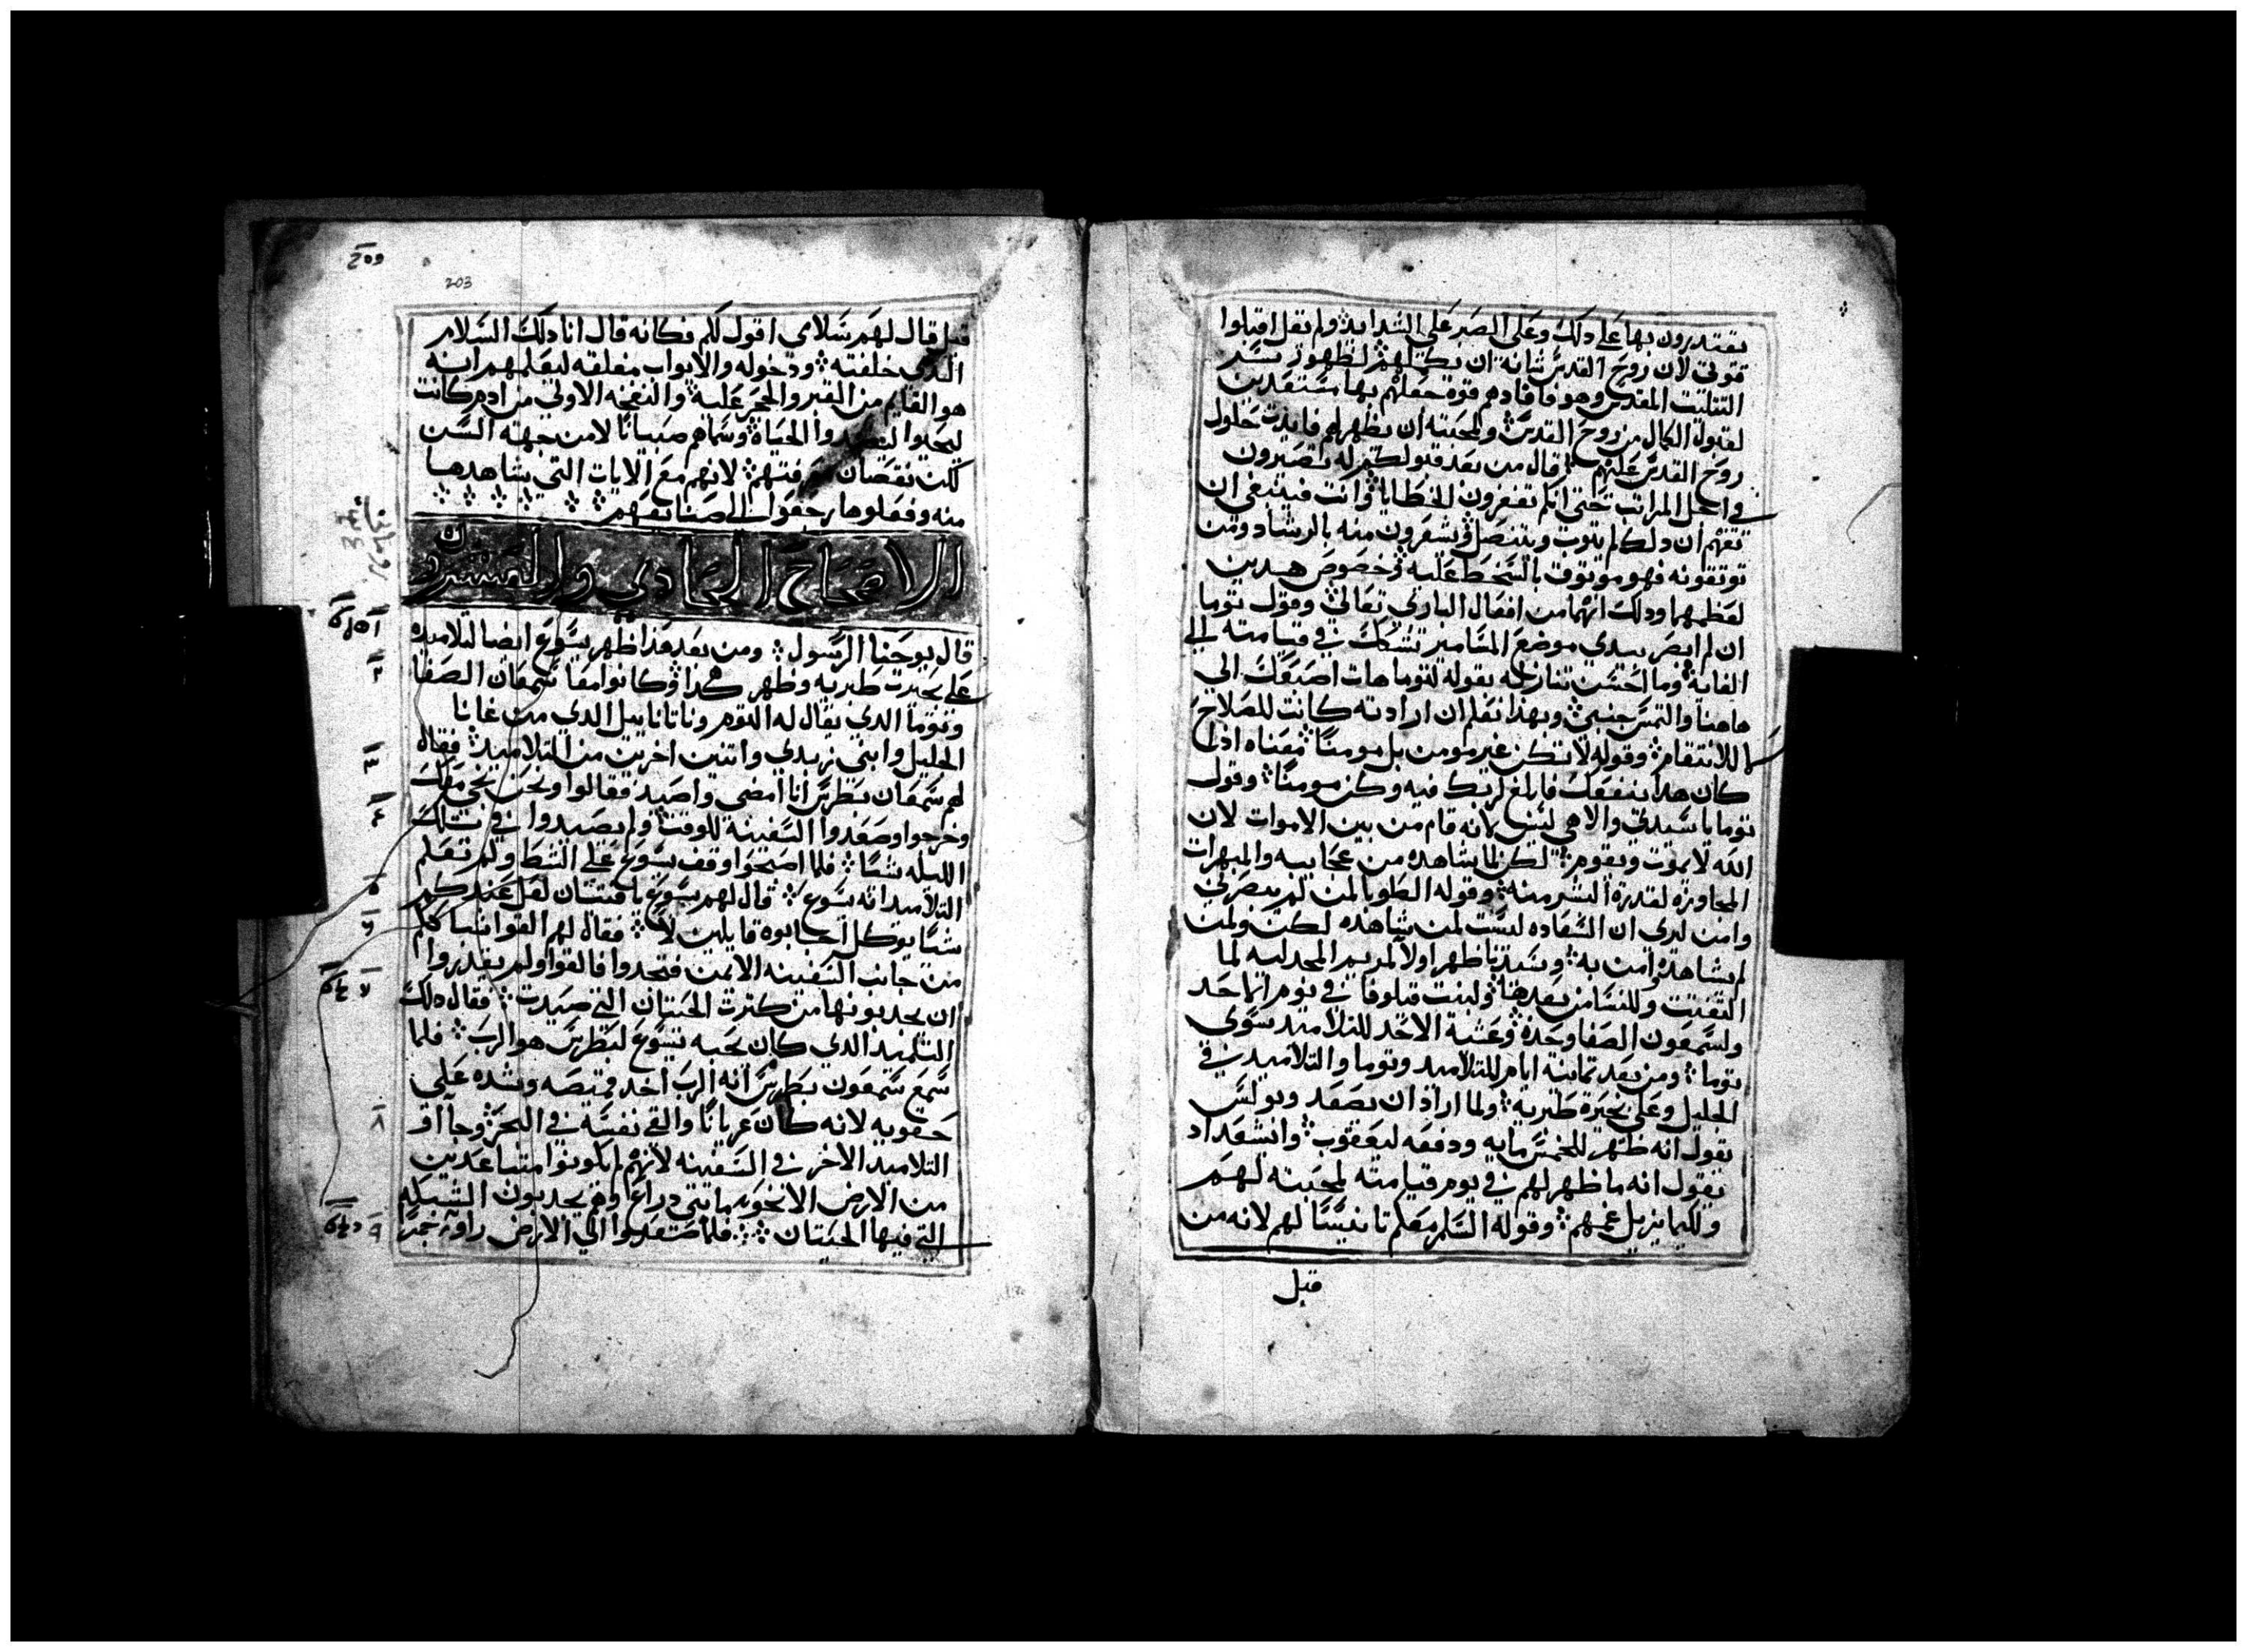 يقتدرون بها على دلك وعلى الصبر على الشدايد ولم يقل اقبلوا
قوتي لان روح القدس شانه ان يكملهم لظهور سر
التتليت المقدس وهو فافادهم قوة جعلهم بها مستعدين
لقبول الكمال من روح القدس ولمحبته ان يظهر لهم فايدت حلول
روح القدس عليهم قال من بعد قبولكم له تصيرون
في اجل المراتب حتى انكم تغفرون الخطايا وانت فينبغي ان
تفهم ان دلك لم يتوب ويتنصل وتشعرون منه بالرشاد ومن
توتقونه فهو موتوق بالسخط عليه وخصوص هدين
لعظمهما ودلك انهما من افعال الباري تعالى وقول توما
ان لم ابصر بيدي موضع المسامير تشكك في قيامته الى
الغاية وما احسن تنازله بقوله لتوما هات اصبعك الى
هاهنا والتمس جنبي وبهدا نعلم ان ارادته كانت للصلاح
لا للانتقام وقوله لا تكن غير مومن بل مومنا معناه ادا
كان هدا ينفعك فابلغ اربك فيه وكن مومنا وقول
توما يا سيدي والاهي ليس لانه قام من بين الاموات لان
الله لا يموت ويقوم لكن لما يشاهده من عجايبه والمبهرات
المجاوزة لقدرة البشر منه وقوله الطوبا لمن لم يبصرني
وامن لدي ان السعاده ليست لمن شاهده لكن ولمن
لم يشاهده وامن به وسيدنا ظهر اولا لمريم المجدليه لما
التفتت وللنسا من بعدها ولبنت قيلوفا في يوم الاحد
ولسمعون الصفا وحده وعشية الاحد للتلاميد سوى
توما ومن بعد تمانية ايام للتلاميد وتوما والتلاميد في
الجليل وعلى بحيرة طبرية ولما اراد ان يصعد وبولس
يقول انه ظهر للخمس مايه ودفعه ليعقوب وانشعداد
يقول انه ما ظهر لهم في يوم قيامته لمحبته لهم
ولكيما يزيل غمهم وقوله السلم معلم تانيسا لهم لانه من
قبل
203
قبل قال لهم سلامي اقول لكم فكانه قال انا دلك السلام
الدي خلفته ودخوله والابواب مغلقه ليعلمهم انه
هو القايم من القبر والحجر عليه والنفخه الاولى من ادم كانت
ليحيوا الحياة وسماهم صبيانا لا من جهة السن
لكن نقصان معرفتهم لانهم مع الايات التي شاهدها
منه وفعلوها رجعوا الى صنايعهم
الاصحاح الحادي والعشرون
قال يوحنا الرسول ومن بعد هدا ظهر يسوع ايضا لتلاميده
على بحيرت طبريه وظهر هكدا وكانوا معا سمعان الصفا
وتوما الدي يقال له التوم وناتانابيل الدي من غانا
الجليل وابني زبدي واتنين اخرين من التلاميد فقال
لهم سمعان بطرس انا امضي واصيد فقالوا ونحن نجي معك
وخرجوا وصعدوا السفينة للوقت ولم يصيدوا في تلك
الليله شيا فلما اصبحوا وقف يسوع على الشط ولم تعلم
التلاميد انه يسوع قال لهم يسوع يا فتيان لعل عندكم
شيا يوكل اجابوه قايلين لا فقال لهم القوا شباككم
من جانب السفينه الايمن فتجدوا فالقوا ولم يقدروا
ان يجدبونها من كترت الحيتان التي صيدت فقال دلك
التلميد الدي كان يحبه يسوع لبطرس هو الرب فلما
سمع سمعون بطرس انه الرب اخد قميصه وشده على
حقويه لانه كان عريانا والقى نفسه في البحر وجا او
التلاميد الاخر في السفينه لانهم لم يكونوا متباعدين
من الارض الا نحو ماتي دراع وهم يجدبون الشبكه
التي فيها الحيتان فلما صعدوا الى الارض راو جمر